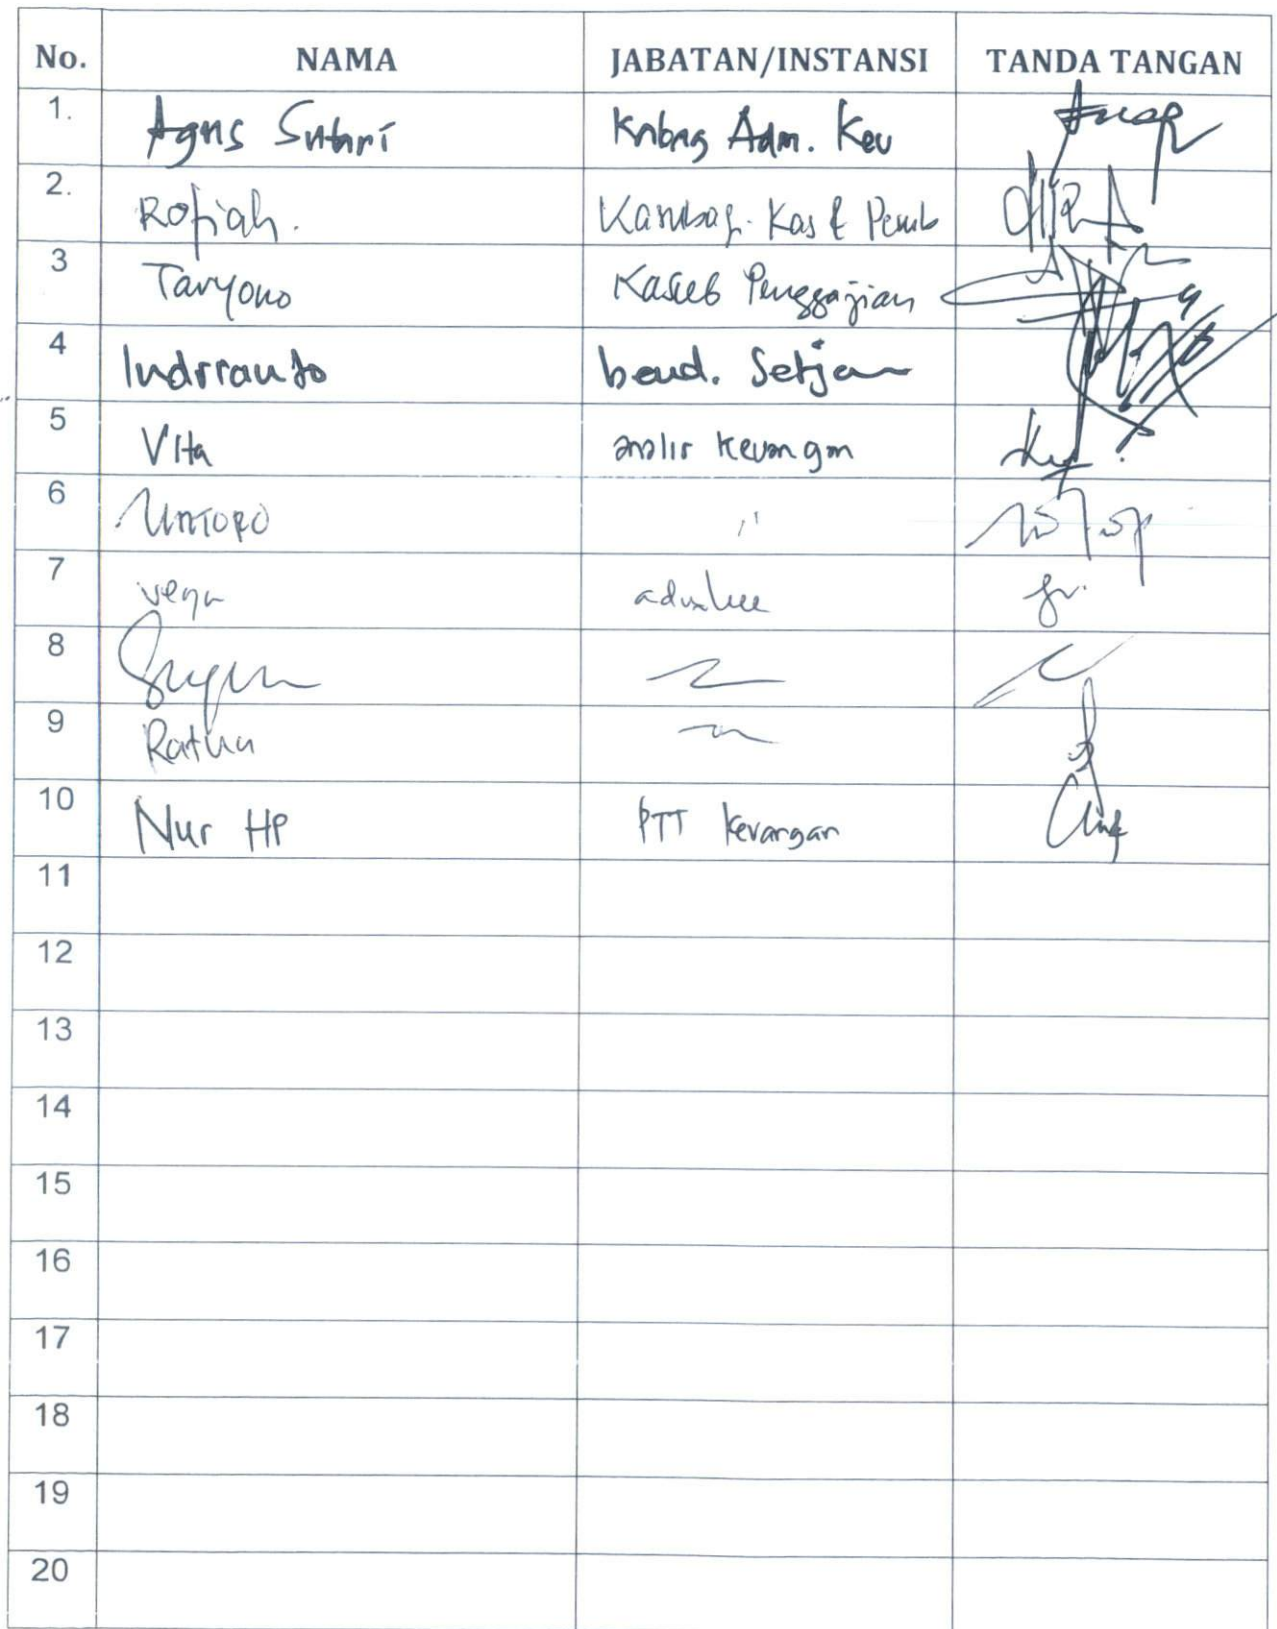 No. NAMA JABATAN/INSTANSI TANDA TANGAN
1. Agus Sutari Kabag Adm. Keu
2. Rofiah. Kasubag. Kas & Pemb
3 Taryono Kasub Penggajian
4 Indrianto bend. Setjen
5 Vita analis keuangan
6 UNTORO "
7 vega
8
9 Ratna
10 Nur HP PTT keuangan
11
12
13
14
15
16
17
18
19
20